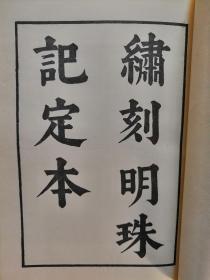 繡刻明珠
記定本